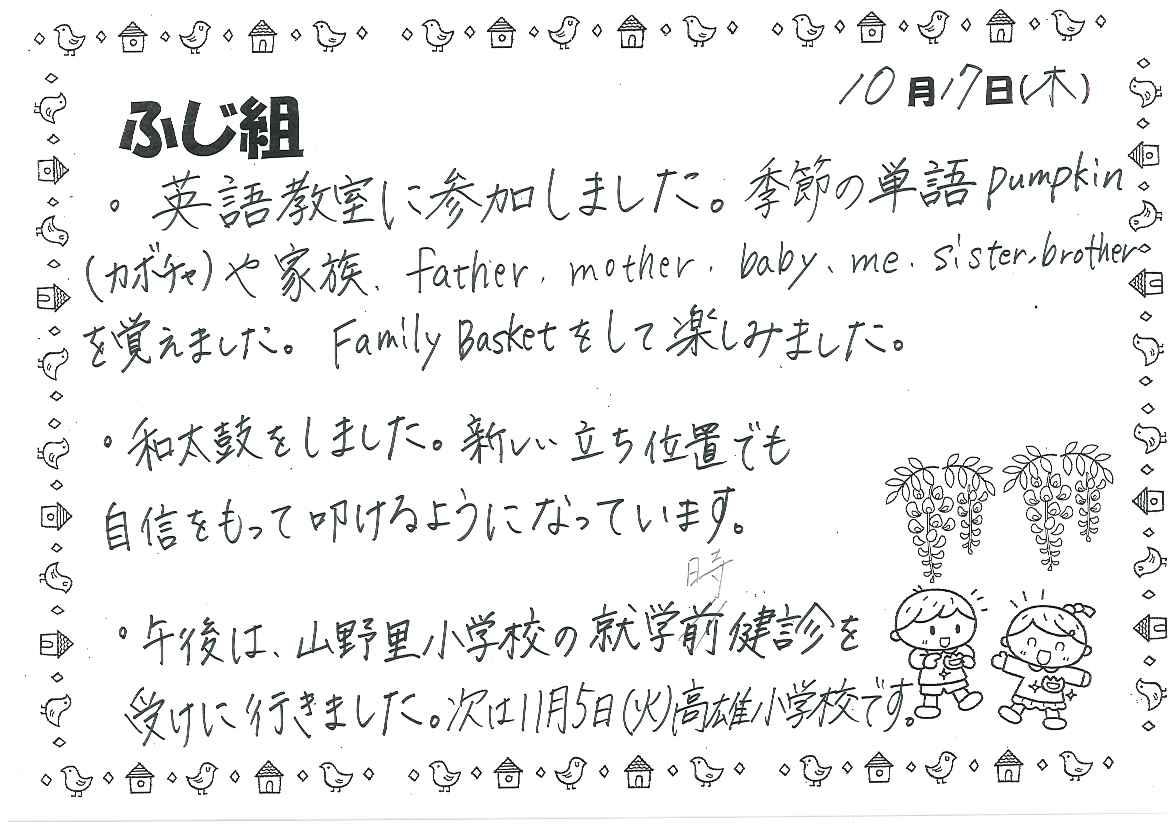 10月17日(木)
ふじ組
。英語教室に参加しました。季節の単語pumpkin
(カボチャ)や家族、father、mother、baby、me、sister、brother
を覚えました。Family Basketをして楽しみました。
。和太鼓をしました。新しい立ち位置でも
自信をもって叩けるようになっています。
時
。午後は、山野里小学校の就学前健診を
受けに行きました。次は11月5日(火)高雄小学校です。